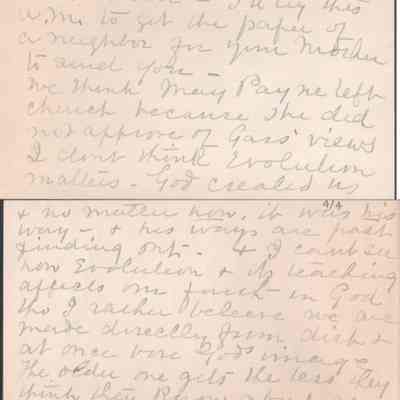 I'll try this
a.m. to get the paper of
a neighbor for your Mother
to send you -
We think Mary Payne left
church because she did
not approve of Gass' views
I dont think Evolution
matters - God created us
4/4
& no matter how, it was his
way - & his ways are past
finding out - & I cant see
how Evolution & its teaching
affects our faith in God
tho I rather beleeve we are
made directly from dirt &
at once bore God's image
The older one gets the less they
think they